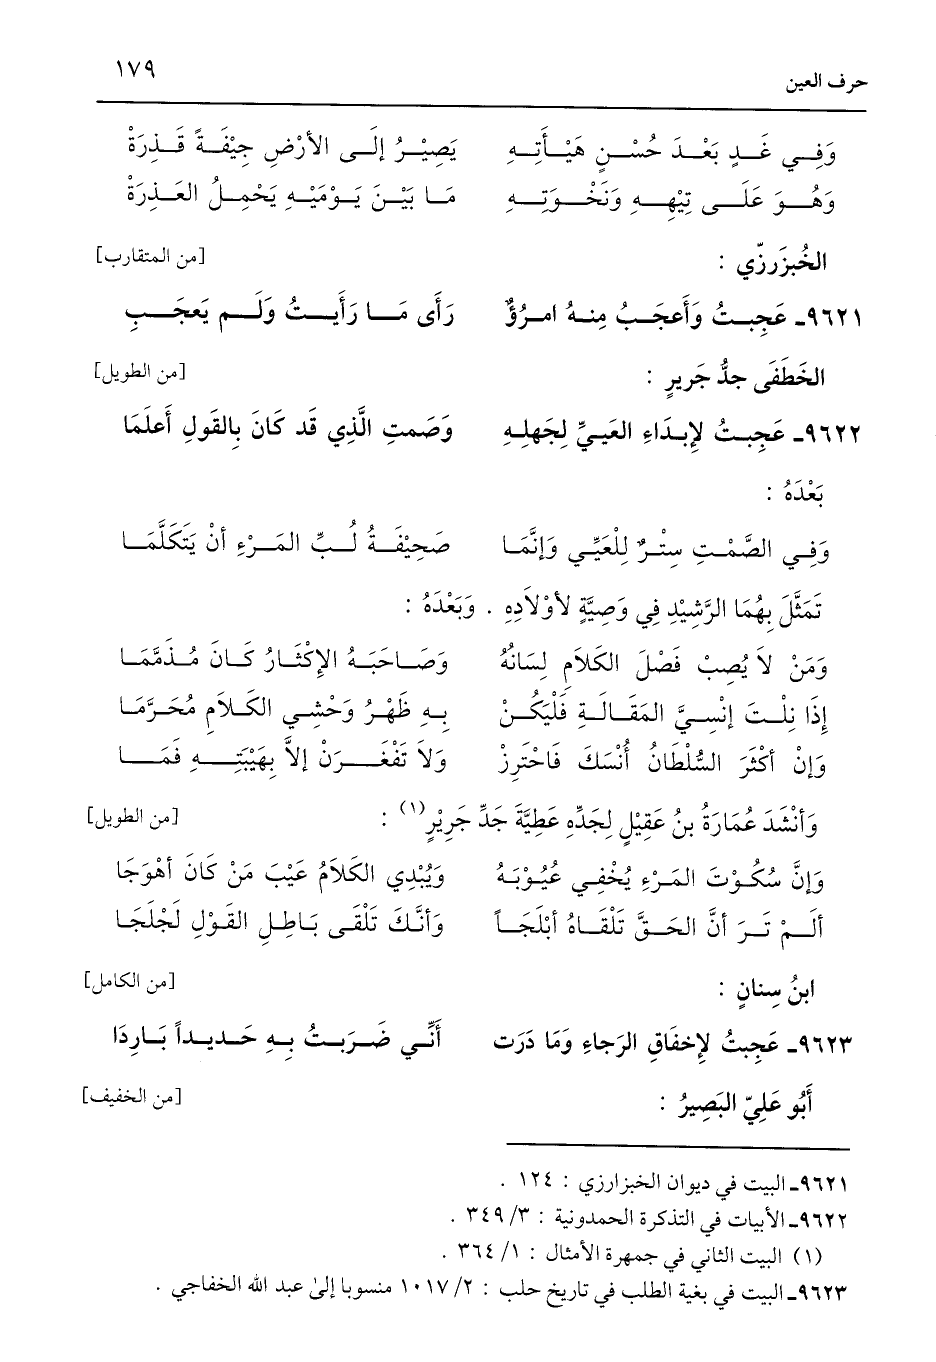 حرف العين ١٧٩
وَفِي غَدٍ بَعْدَ حُسْنِ هَيْأَتِهِ يَصِيْرُ إِلَى الأَرْضِ جِيْفَةً قَذِرَةْ
وَهُوَ عَلَى تِيْهِهِ وَنَخْوَتِهِ مَا بَيْنَ يَوْمَيْهِ يَحْمِلُ العَذِرَةْ
الخُبزَرزّي : [من المتقارب]
٩٦٢١ـ عَجِبتُ وَأَعجَبُ مِنهُ امرُؤٌ رَأَى مَا رَأَيتُ وَلَم يَعجَبِ
الخَطَفَى جدُّ جَريرٍ : [من الطويل]
٩٦٢٢ـ عَجِبتُ لإِبدَاءِ العَييِّ لِجَهلِهِ وَصَمتِ الَّذِي قَد كَانَ بِالقَولِ أَعلَمَا
بَعْدَهُ :
وَفِي الصَّمْتِ سِتْرٌ لِلْعَيِّي وَإِنَّمَا صَحِيْفَةُ لُبِّ المَرْءِ أَنْ يَتَكَلَّمَا
تَمَثَّلَ بِهُمَا الرَّشِيْدِ فِي وَصِيَّةٍ لأَوْلاَدِهِ . وَبَعْدَهُ :
وَمَنْ لاَ يُصِبْ فَضْلَ الكَلاَمِ لِسَانُهُ وَصَاحَبَهُ الإِكْثَارُ كَانَ مُذَمَّمَا
إِذَا نِلْتَ إِنْسِيَّ المَقَالَةِ فَلْيَكُنْ بِهِ ظَهْرُ وَحْشِي الكَلاَمِ مُحَرَّمَا
وَإِنْ أَكْثَرَ السُّلْطَانُ أُنْسَكَ فَاحْتَرِزْ وَلاَ تَفْغَرَنْ إِلاَّ بِهَيْبَتِهِ فَمَا
وَأَنْشَدَ عُمَارَةُ بنُ عَقِيْلٍ لِجَدِّهِ عَطِيَّةَ جَدِّ جَرِيْرٍ(١) : [من الطويل]
وَإِنَّ سُكُوْتَ المَرْءِ يُخْفِي عُيُوْبَهُ وَيُبْدِي الكَلاَمُ عَيْبَ مَنْ كَانَ أَهْوَجَا
أَلَمْ تَرَ أَنَّ الحَقَّ تَلْقَاهُ أَبْلَجَاً وَأَنَّكَ تَلْقَى بَاطِلِ القَوْلِ لَجْلَجَا
ابنُ سِنانٍ : [من الكامل]
٩٦٢٣ـ عَجِبتُ لإِخفَاقِ الرَجاءِ وَمَا دَرَت أَنِّي ضَرَبتُ بِهِ حَدِيداً بَارِدَا
أَبُو عَلِيّ البَصِيرُ : [من الخفيف]
٩٦٢١ـ البيت في ديوان الخبزارزي : ١٢٤ .
٩٦٢٢ـ الأبيات في التذكرة الحمدونية : ٣/ ٣٤٩ .
(١) البيت الثاني في جمهرة الأمثال : ١/ ٣٦٤ .
٩٦٢٣ـ البيت في بغية الطلب في تاريخ حلب : ٢/ ١٠١٧ منسوبا إلىٰ عبد الله الخفاجي .